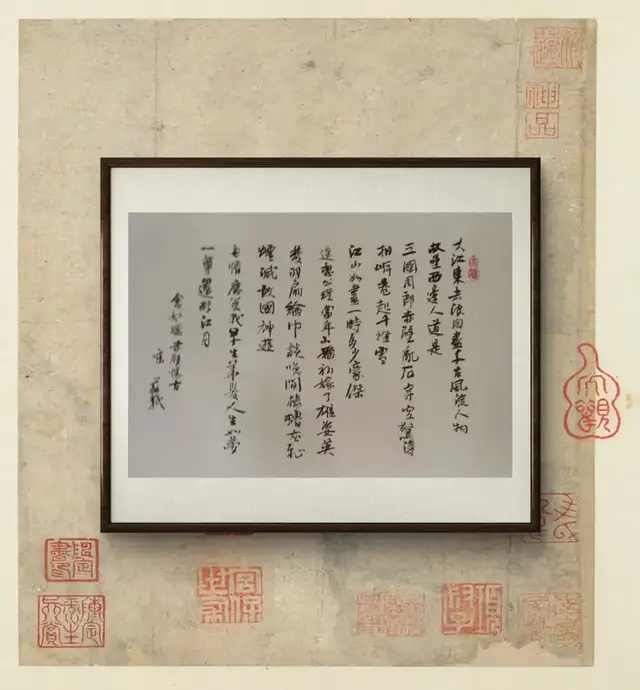 大江東去浪淘盡千古風流人物
故壘西邊人道是
三國周郎赤壁亂石穿空驚濤
拍岸卷起千堆雪
江山如畫一時多少豪傑
遙想公瑾當年小喬初嫁了雄姿英
發羽扇綸巾談笑間檣櫓灰飛
煙滅故國神遊
多情應笑我早生華髮人生如夢
一尊還酹江月
念奴嬌赤壁懷古
宋 蘇軾
神品